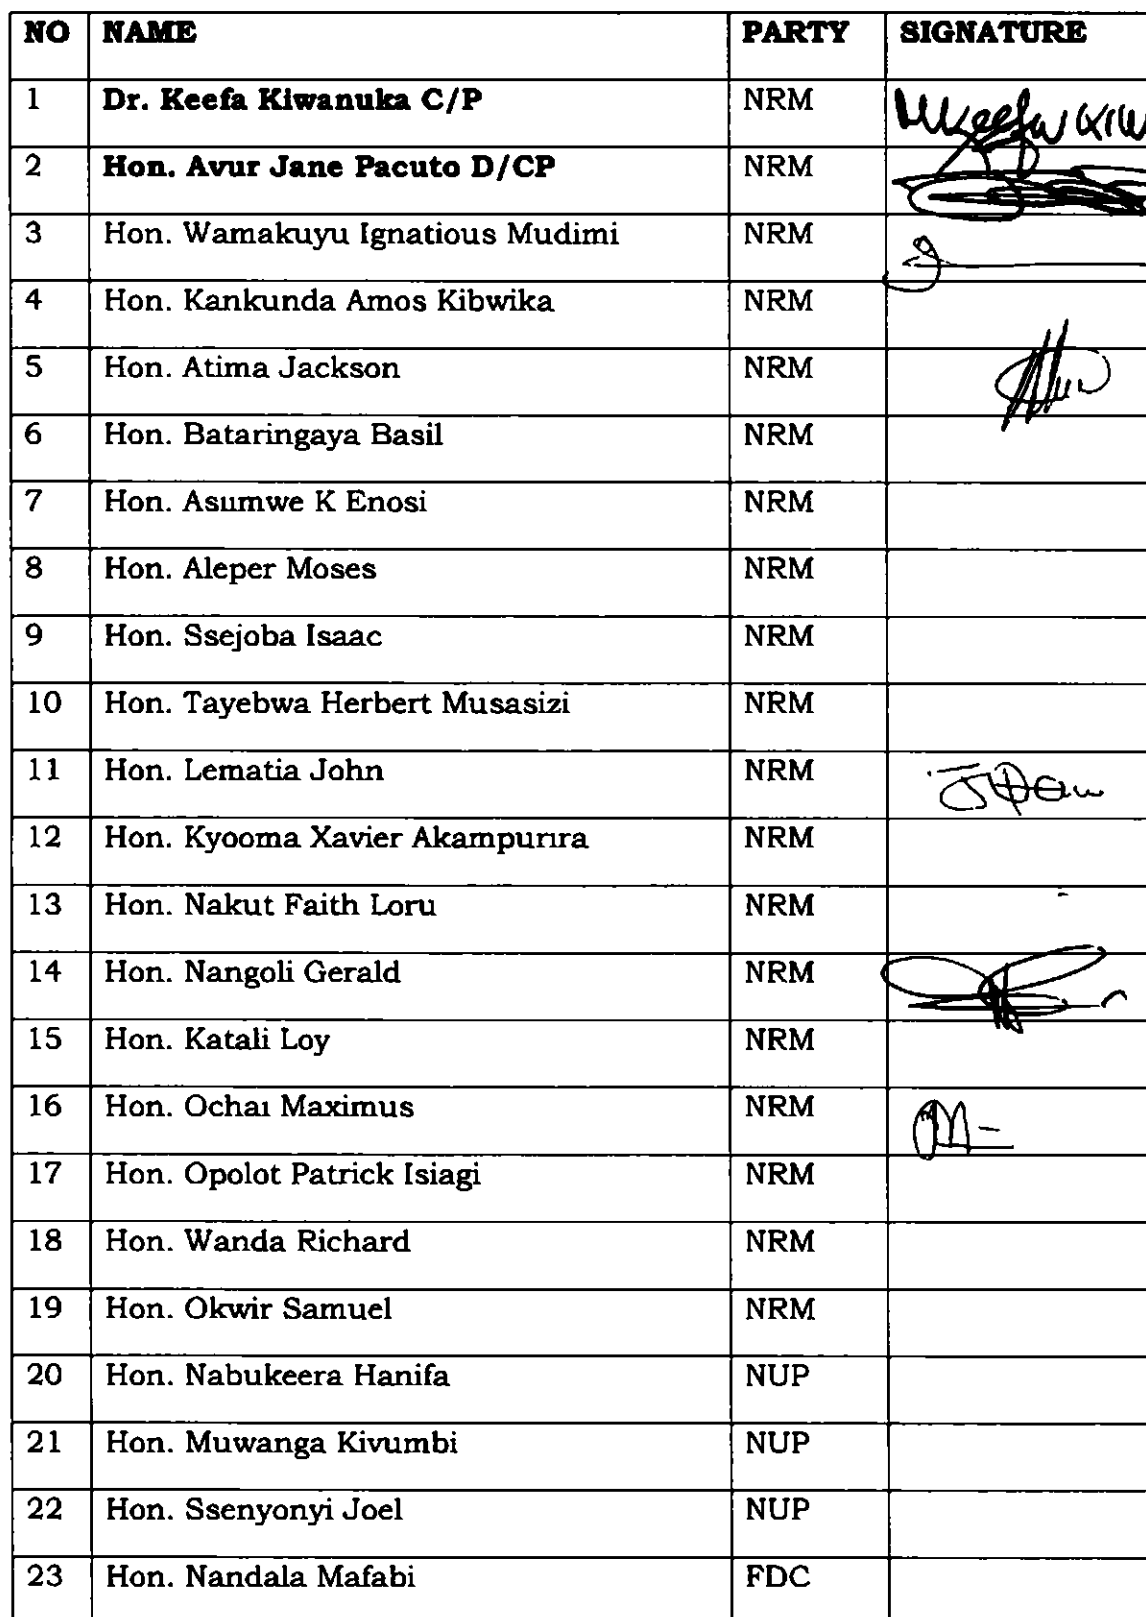 NO NAME PARTY SIGNATURE
1 Dr. Keefa Kiwanuka C/P NRM Keefa KIW
2 Hon. Avur Jane Pacuto D/CP NRM
3 Hon. Wamakuyu Ignatious Mudimi NRM
4 Hon. Kankunda Amos Kibwika NRM
5 Hon. Atima Jackson NRM
6 Hon. Bataringaya Basil NRM
7 Hon. Asumwe K Enosi NRM
8 Hon. Aleper Moses NRM
9 Hon. Ssejoba Isaac NRM
10 Hon. Tayebwa Herbert Musasizi NRM
11 Hon. Lematia John NRM
12 Hon. Kyooma Xavier Akampurıra NRM
13 Hon. Nakut Faith Loru NRM
14 Hon. Nangoli Gerald NRM
15 Hon. Katali Loy NRM
16 Hon. Ochaı Maximus NRM
17 Hon. Opolot Patrick Isiagi NRM
18 Hon. Wanda Richard NRM
19 Hon. Okwir Samuel NRM
20 Hon. Nabukeera Hanifa NUP
21 Hon. Muwanga Kivumbi NUP
22 Hon. Ssenyonyi Joel NUP
23 Hon. Nandala Mafabi FDC